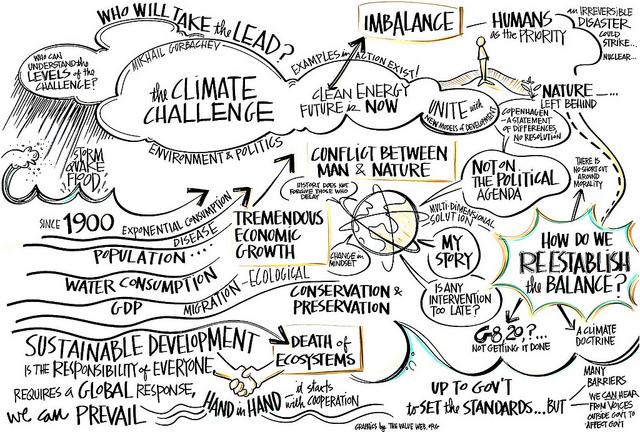 WHO WILL TAKE the LEAD?
WHO CAN
UNDERSTAND the
LEVELS of the
CHALLENGE?
MIKHAIL GORBACHEV
the CLIMATE
CHALLENGE
ENVIRONMENT & POLITICS
EXAMPLES in ACTION EXIST!
CLEAN ENERGY
FUTURE is NOW
IMBALANCE
HUMANS
as the PRIORITY
an IRREVERSIBLE
DISASTER
COULD
STRIKE...
NUCLEAR...
NATURE ...
LEFT BEHIND
UNITE with
NEW MODELS of DEVELOPMENT
COPENHAGEN
- A STATEMENT
OF DIFFERENCES,
NO RESOLUTION
STORM
QUAKE
FLOOD
CONFLICT BETWEEN
MAN & NATURE
HISTORY DOES NOT
FORGIVE THOSE WHO
DELAY
NOT ON...
THE POLITICAL
AGENDA
THERE IS
NO SHORT CUT
AROUND
MORALITY
SINCE 1900
EXPONENTIAL CONSUMPTION
DISEASE
POPULATION ...
WATER CONSUMPTION
GDP
MIGRATION - ECOLOGICAL
TREMENDOUS
ECONOMIC
GROWTH
CHANGE in
MINDSET
MULTI-DIMENSIONAL
SOLUTION
MY
STORY
IS ANY
INTERVENTION
TOO LATE?
HOW DO WE
REESTABLISH
the BALANCE?
CONSERVATION &
PRESERVATION
G8, 20,?...
NOT GETTING IT DONE
A CLIMATE
DOCTRINE
SUSTAINABLE DEVELOPMENT
IS THE RESPONSIBILITY of EVERYONE
REQUIRES a GLOBAL RESPONSE,
we can PREVAIL
DEATH of
ECOSYSTEMS
HAND in HAND
it starts
with COOPERATION
UP TO GOV'T
to SET the STANDARDS...BUT
MANY
BARRIERS
WE CAN HEAR
FROM VOICES
OUTSIDE GOV'T TO
AFFECT GOV'T
GRAPHICS by THE VALUE WEB.ORG